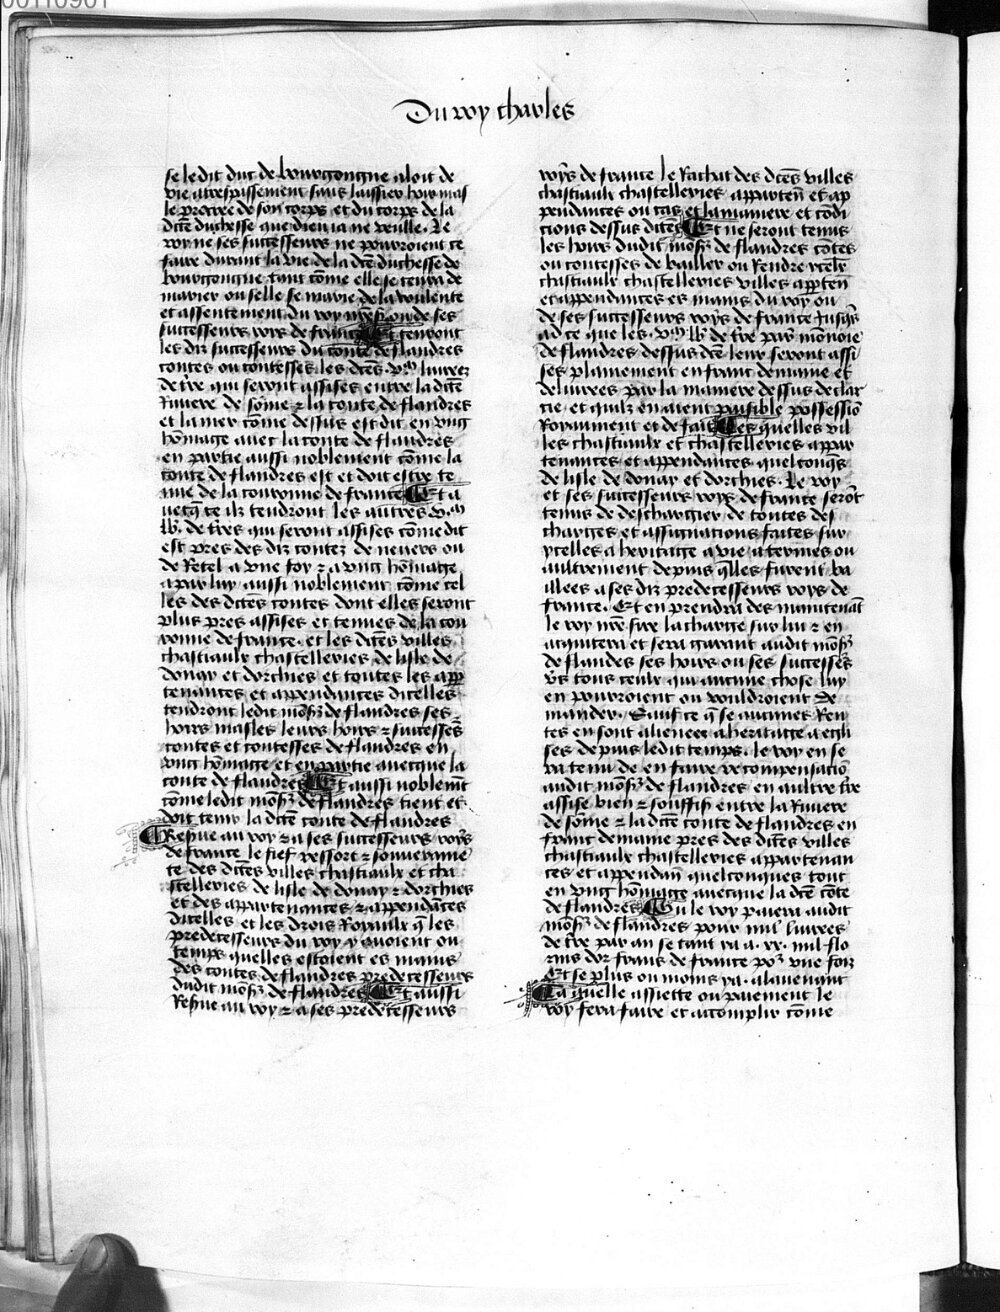 00110901
Du roy charles
se ledit duc de bourgongne aloit de
vie a trespassement sans laissier hoir mas
le procree de son corps et du corps de la
dcte duchesse que dieu ia ne veulle. Le
roy ne ses successeurs ne pourroient ce
faire durant la vie de la dcte duchesse de
bourgongne tant cõme elle se tenra de
marier ou selle se marie de la voulente
et assentement du roy nre sr ou de ses
successeurs roys de france Et tenront
les diz successeurs du conte de flandres
contes ou contesses les dctes .vm livrez
de tre qui seront assises entre la dcte
Riviere de sõme et la conte de flandres
et la mer cõme dessus est dit en ung
hõmage avec la conte de flandres
en partie aussi noblement cõme la
conte de flandres est et doit estre te
nue de la couronne de france Et a
vecq ce ilz tendront les autres .v.m
lb. de tres qui seront assises cõme dit
est pres des diz contez de nevers ou
de Retel a une foy et a ung hõmage
a par luy aussi noblement cõme cel
les des dctes contes dont elles seront
plus pres assises et tenues de la cou
ronne de france. et les dctes villes
chastiaulx chastelleries de lisle de
douay et dorchies et toutes les app
tenances et appendances dicelles
tendront ledit mõsr de flandres ses
hoirs masles leurs hoirs et successrs
contes et contesses de flandres en
ung hõmage et en partie avecque la
conte de flandres Et aussi noblemt
cõme ledit mõsr de flandres tient et
doit tenir la dcte conte de flandres
Reserve au roy et a ses successeurs roys
de france le fief ressort et souveraine
te des dctes villes chastiaulx et cha
stelleries de lisle de douay et dorchies
et des appartenances et appendãces
dicelles et les drois Royaulx q les
predecesseurs du roy y avoient ou
temps quelles estoient es mains
des contes de flandres predecesseurs
dudit mõsr de flandres Et aussi
Reserve au roy et a ses predecesseurs
roys de france le Rachat des dctes villes
chastiaulx chastelleries apparten et ap
pendances ou cas et la maniere et cõdi
cions dessus dctes Et ne seront tenus
les hoirs dudit mõsr de flandres cõtes
ou contesses de bailler ou Rendre yceulx
chastiaulx chastelleries villes apperten
et appendances es mains du roy ou
de ses successeurs roys de france Jusqs
ad ce que les .v.m lb. de tre par monnoie
de flandres dessus dcte leur seront assi
ses plainement en franc demaine et
delivrees par la maniere dessus declai
rie et quilz en aient paisible possessiõ
Royaument et de fait Les quelles vil
les chastiaulx et chastelleries appar
tenances et appendances quelconqs
de lisle de douay et dorchies. Le roy
et ses successeurs roys de france serõt
tenus de deschargier de toutes des
charges et assignations faites sur
ycelles a heritage a vie a termes ou
aultrement depuis qlles furent ba
illees a ses diz predecesseurs roys de
france. Et en prendra des maintenant
le roy nre sire la charge sur lui et en
acquitera et sera garant audit mõsr
de flandes ses hoirs ou ses successrs
vs tous ceulx qui aucune chose luy
en pourroient ou vouldroient de
mander. Sauf ce q se aucunes Ren
tes en sont alienees a heritage a egli
ses depuis ledit temps. le roy en se
ra tenu de en faire recompensaciõ
audit mõsr de flandres en aultre tre
assise bien et souffisi entre la Riviere
de sõme et la dcte conte de flandres en
franc demaine pres des dctes villes
chastiaulx chastelleries appartenan
ces et appendan quelconques tout
en ung hõmage avecque la dcte cõte
de flandres Ou le roy paiera audit
mõsr de flandres pour mil livrees
de tre par an se tant ya a .xx. mil flo
rins dor frans de france por une foiz
Et se plus ou moins ya. a lavenant
La quelle assiette ou paiement le
roy fera faire et acomplir cõme